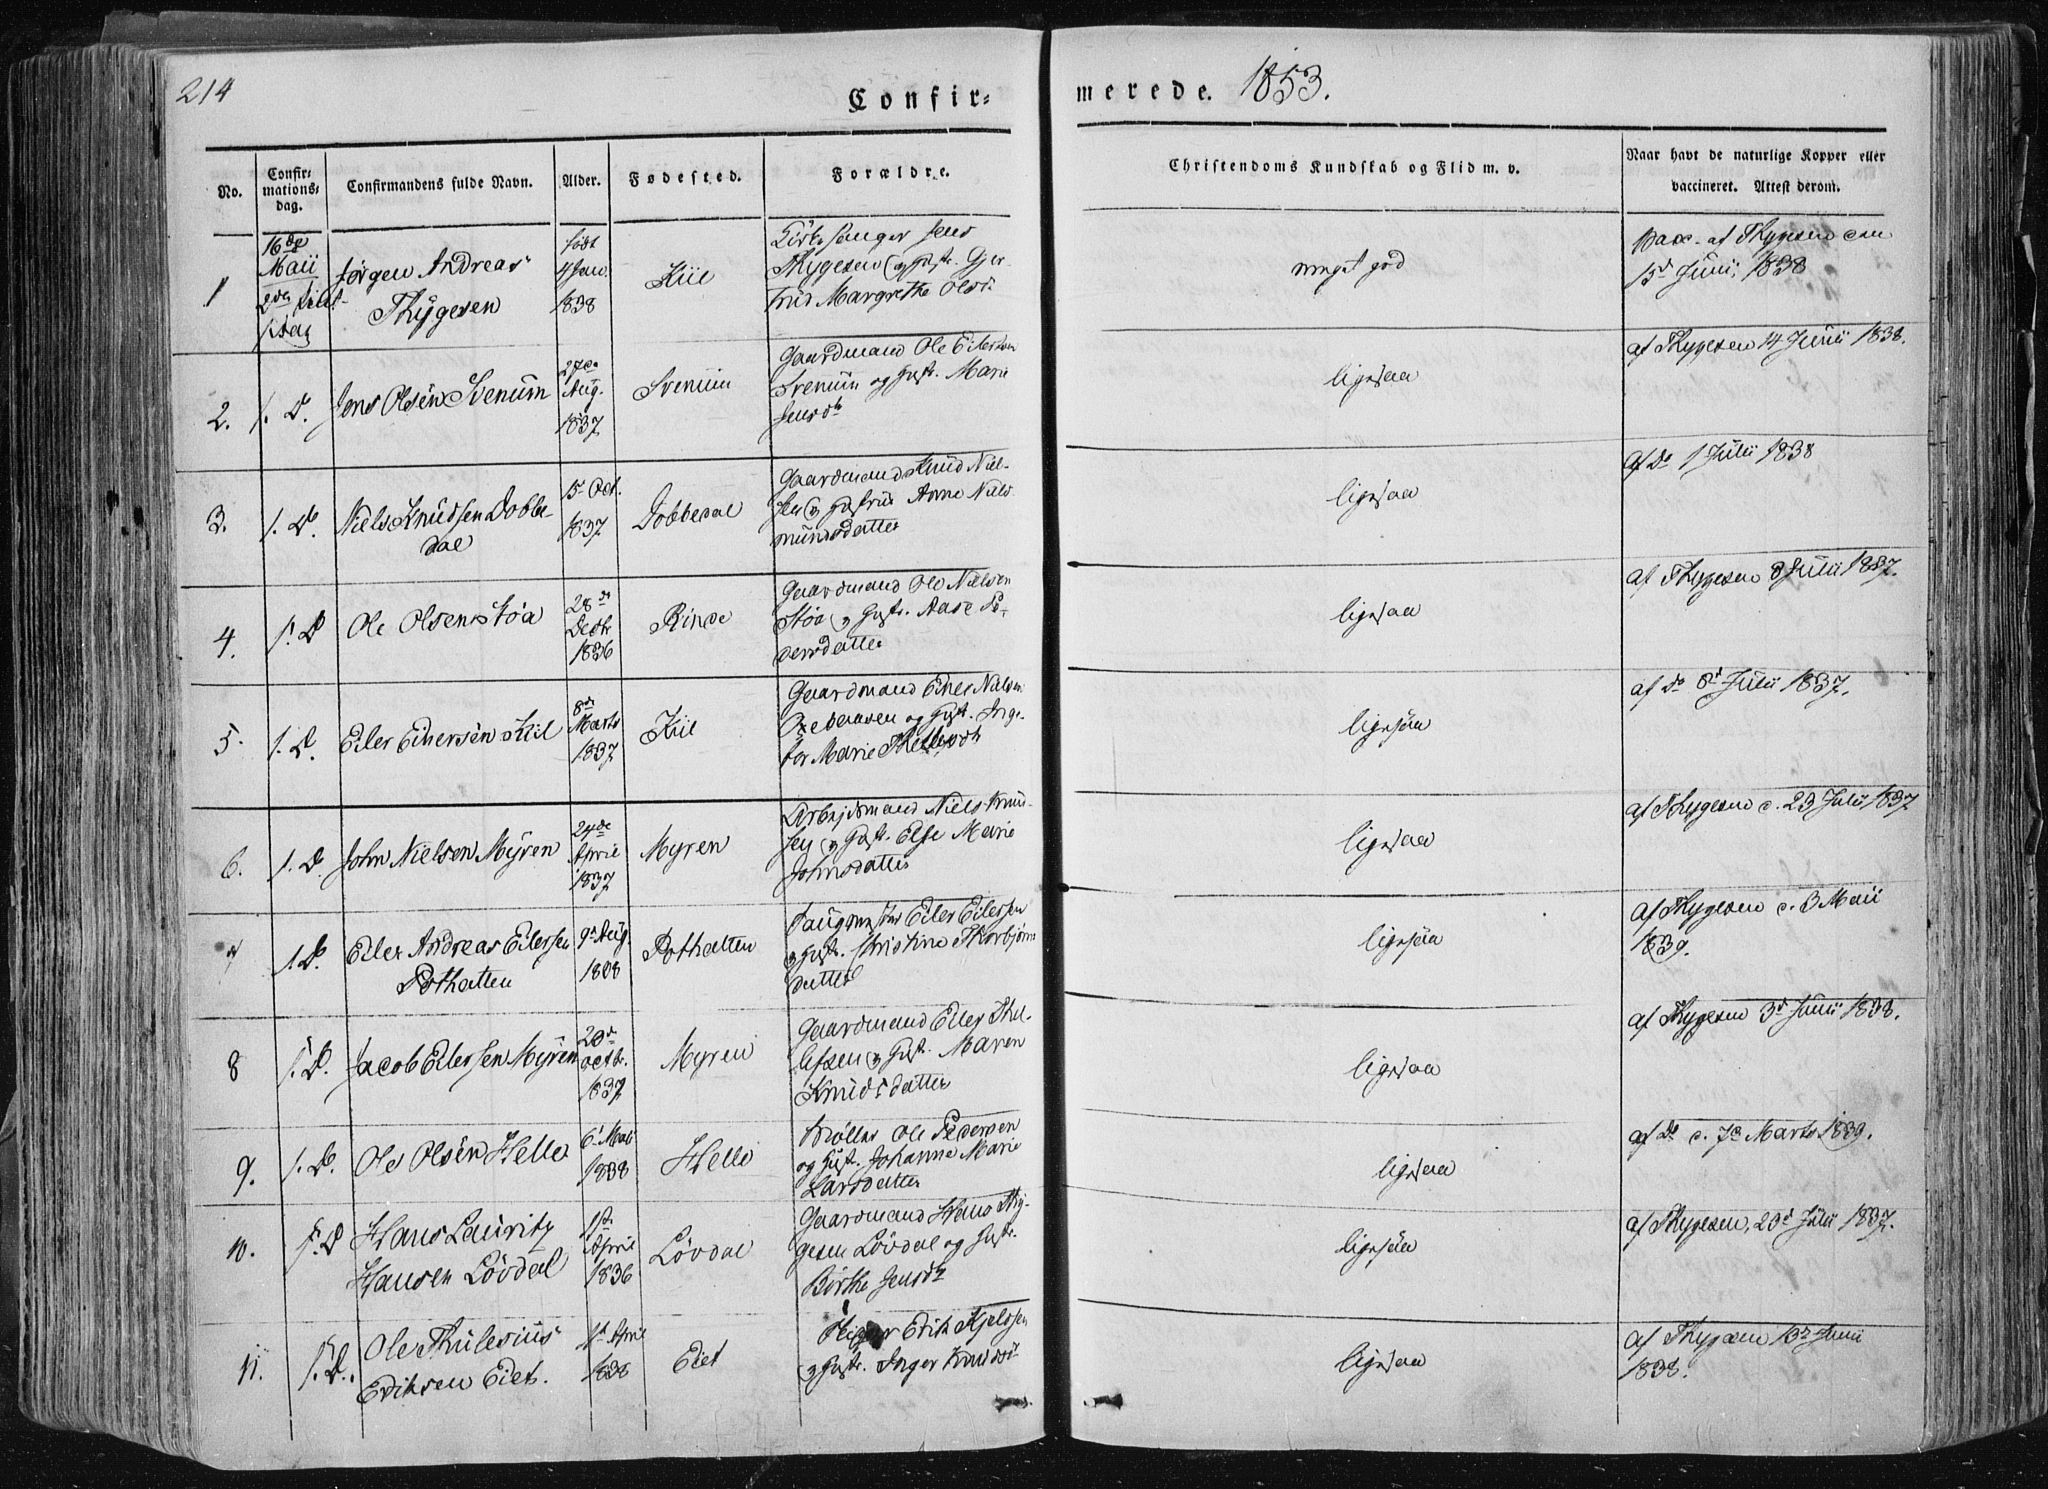 214
Confir-
merede. 1853.
No.
Confir-
mations-
dag.
Confirmandens fulde Navn.
Alder.
Fødested.
Forældre.
Christendoms Kundskab og Flid m. v.
Naar havt de naturlige Kopper eller
vaccineret. Attest derom.
1
16de
Maii
2den
Jørgen Andreas
Thygesen
født
4 Jan.
1838
Kiil
Kirkesanger Jens
Thygesen og Hustr. Ger-
trud Margrethe Olsd.
meget god
Vacc. af Thygesen den
15d Junii, 1838
2.
s. D.
Jens Olsen Svenüm
27de
Aug.
1837
Svenüm
Gaardmand Ole Eilersen
Svenüm og Hustr. Marie
Jensdtr
ligesaa
af Thygesen 14 Junii 1838.
3.
s. D.
Niels Knudsen Dobbe-
dal
15 Oct.
1837
Dobbedal
Gaardmand Knud Niel-
sen og Hustrue Anne Niels
mundsdatter
ligesaa
af Do 1 Julii 1838
4.
s. D
Ole Olsen Støa
28de
Decbr
1836
Rinde
Gaardmand Ole Nielsen
Støa og Hustr. Aase Pe-
dersdatter
ligesaa
af Thygesen 8 Julii 1837.
5.
s. D.
Eiler Einersen Kiil
8de
Marts
1837
Kiil
Gaardmand Einer Nielsen
og Hustr. Inge-
bor Marie
ligesaa
af Do 8d Julii 1837.
6.
s. D.
John Nielsen Myren
24de
April
1837
Myren
Arbejdsmand Niels Knud-
sen og Hustr. Else Marie
Johnsdatter
ligesaa
af Thygesen d. 23 Julii 1837
7
s. D.
Eiler Andreas Eilersen
Pothatten
9d Aug.
1838
Pothatten
Eiler Eilersen
og Hustr. Christine Thorbjørns
datter
ligesaa
af Thygesen d. 3 Maii
1839.
8
s. D.
Jacob Eilersen Myren
20d
Octb.
1837
Myren
Gaardmand Eiler Thul-
lefsen og Hustr. Maren
Knudsdatter
ligesaa
af Thygesen 3d Junii 1838.
9.
s. D.
Ole Olsen Helle
6t Mai
1838
Helle
Møller Ole Pedersen
og Hustr. Johanne Marie
Larsdatter
ligesaa
af Do d. 7de Marts 1839.
10.
s. D
Hans Lauritz
Hansen Lövdal
1ste
April
1836
Lövdal
Gaardmand Hans Thy-
gesen Lövdal og Hustr.
Birthe Jensdtr
ligesaa
af Thygesen, 20d Julii 1837.
11.
s. D.
Ole Thulesius
Eriksen Eiet.
1st April
1838
Eiet
Erik Kjelssen
og Hustr. Inger Knudsd
ligesaa
af Thygesen 13de Junii
1838.